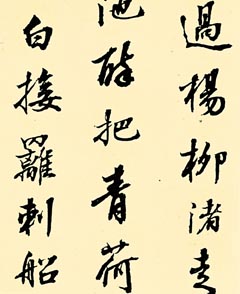 過楊柳渚走
池醉把青荷
白接䍦刺船